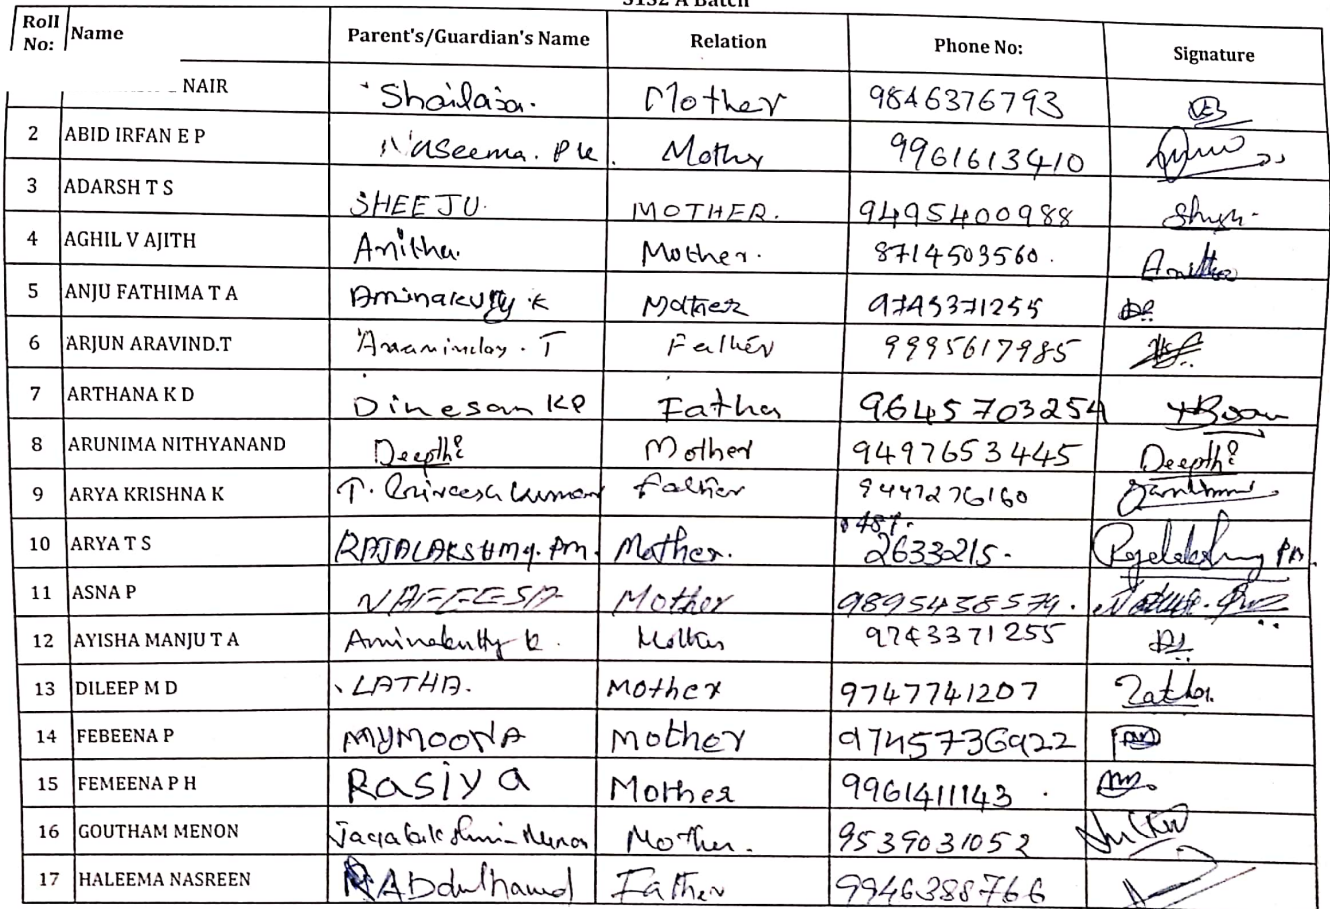 S1S2 A Batch
Roll No: Name Parent's/Guardian's Name Relation Phone No: Signature
NAIR Shailaja. Mother 9846376793
2 ABID IRFAN E P Naseema. P K. Mother 9961613410
3 ADARSH T S SHEEJU. MOTHER. 9495400988
4 AGHIL V AJITH Anitha. Mother. 8714503560. Anitha
5 ANJU FATHIMA T A Aminakutty K Mother 9743371255
6 ARJUN ARAVIND.T T Father 9995617985
7 ARTHANA K D Dinesan KP Father 9645703254
8 ARUNIMA NITHYANAND Deepthi Mother 9497653445 Deepthi
9 ARYA KRISHNA K T. Kumar Father 9447276160
10 ARYA T S RAJALAKSHMY. PM. Mother. 0487. 2633215. Rajalakshmy PM.
11 ASNA P NAFEESA Mother 9895438579.
12 AYISHA MANJU T A Aminakutty K. Mother 9743371255
13 DILEEP M D LATHA. Mother 9747741207 Latha.
14 FEBEENA P MYMOONA Mother 9745736922
15 FEMEENA P H Rasiya Mother 9961411143.
16 GOUTHAM MENON Menon Mother. 9539031052
17 HALEEMA NASREEN Abdulhamed Father 9946388766